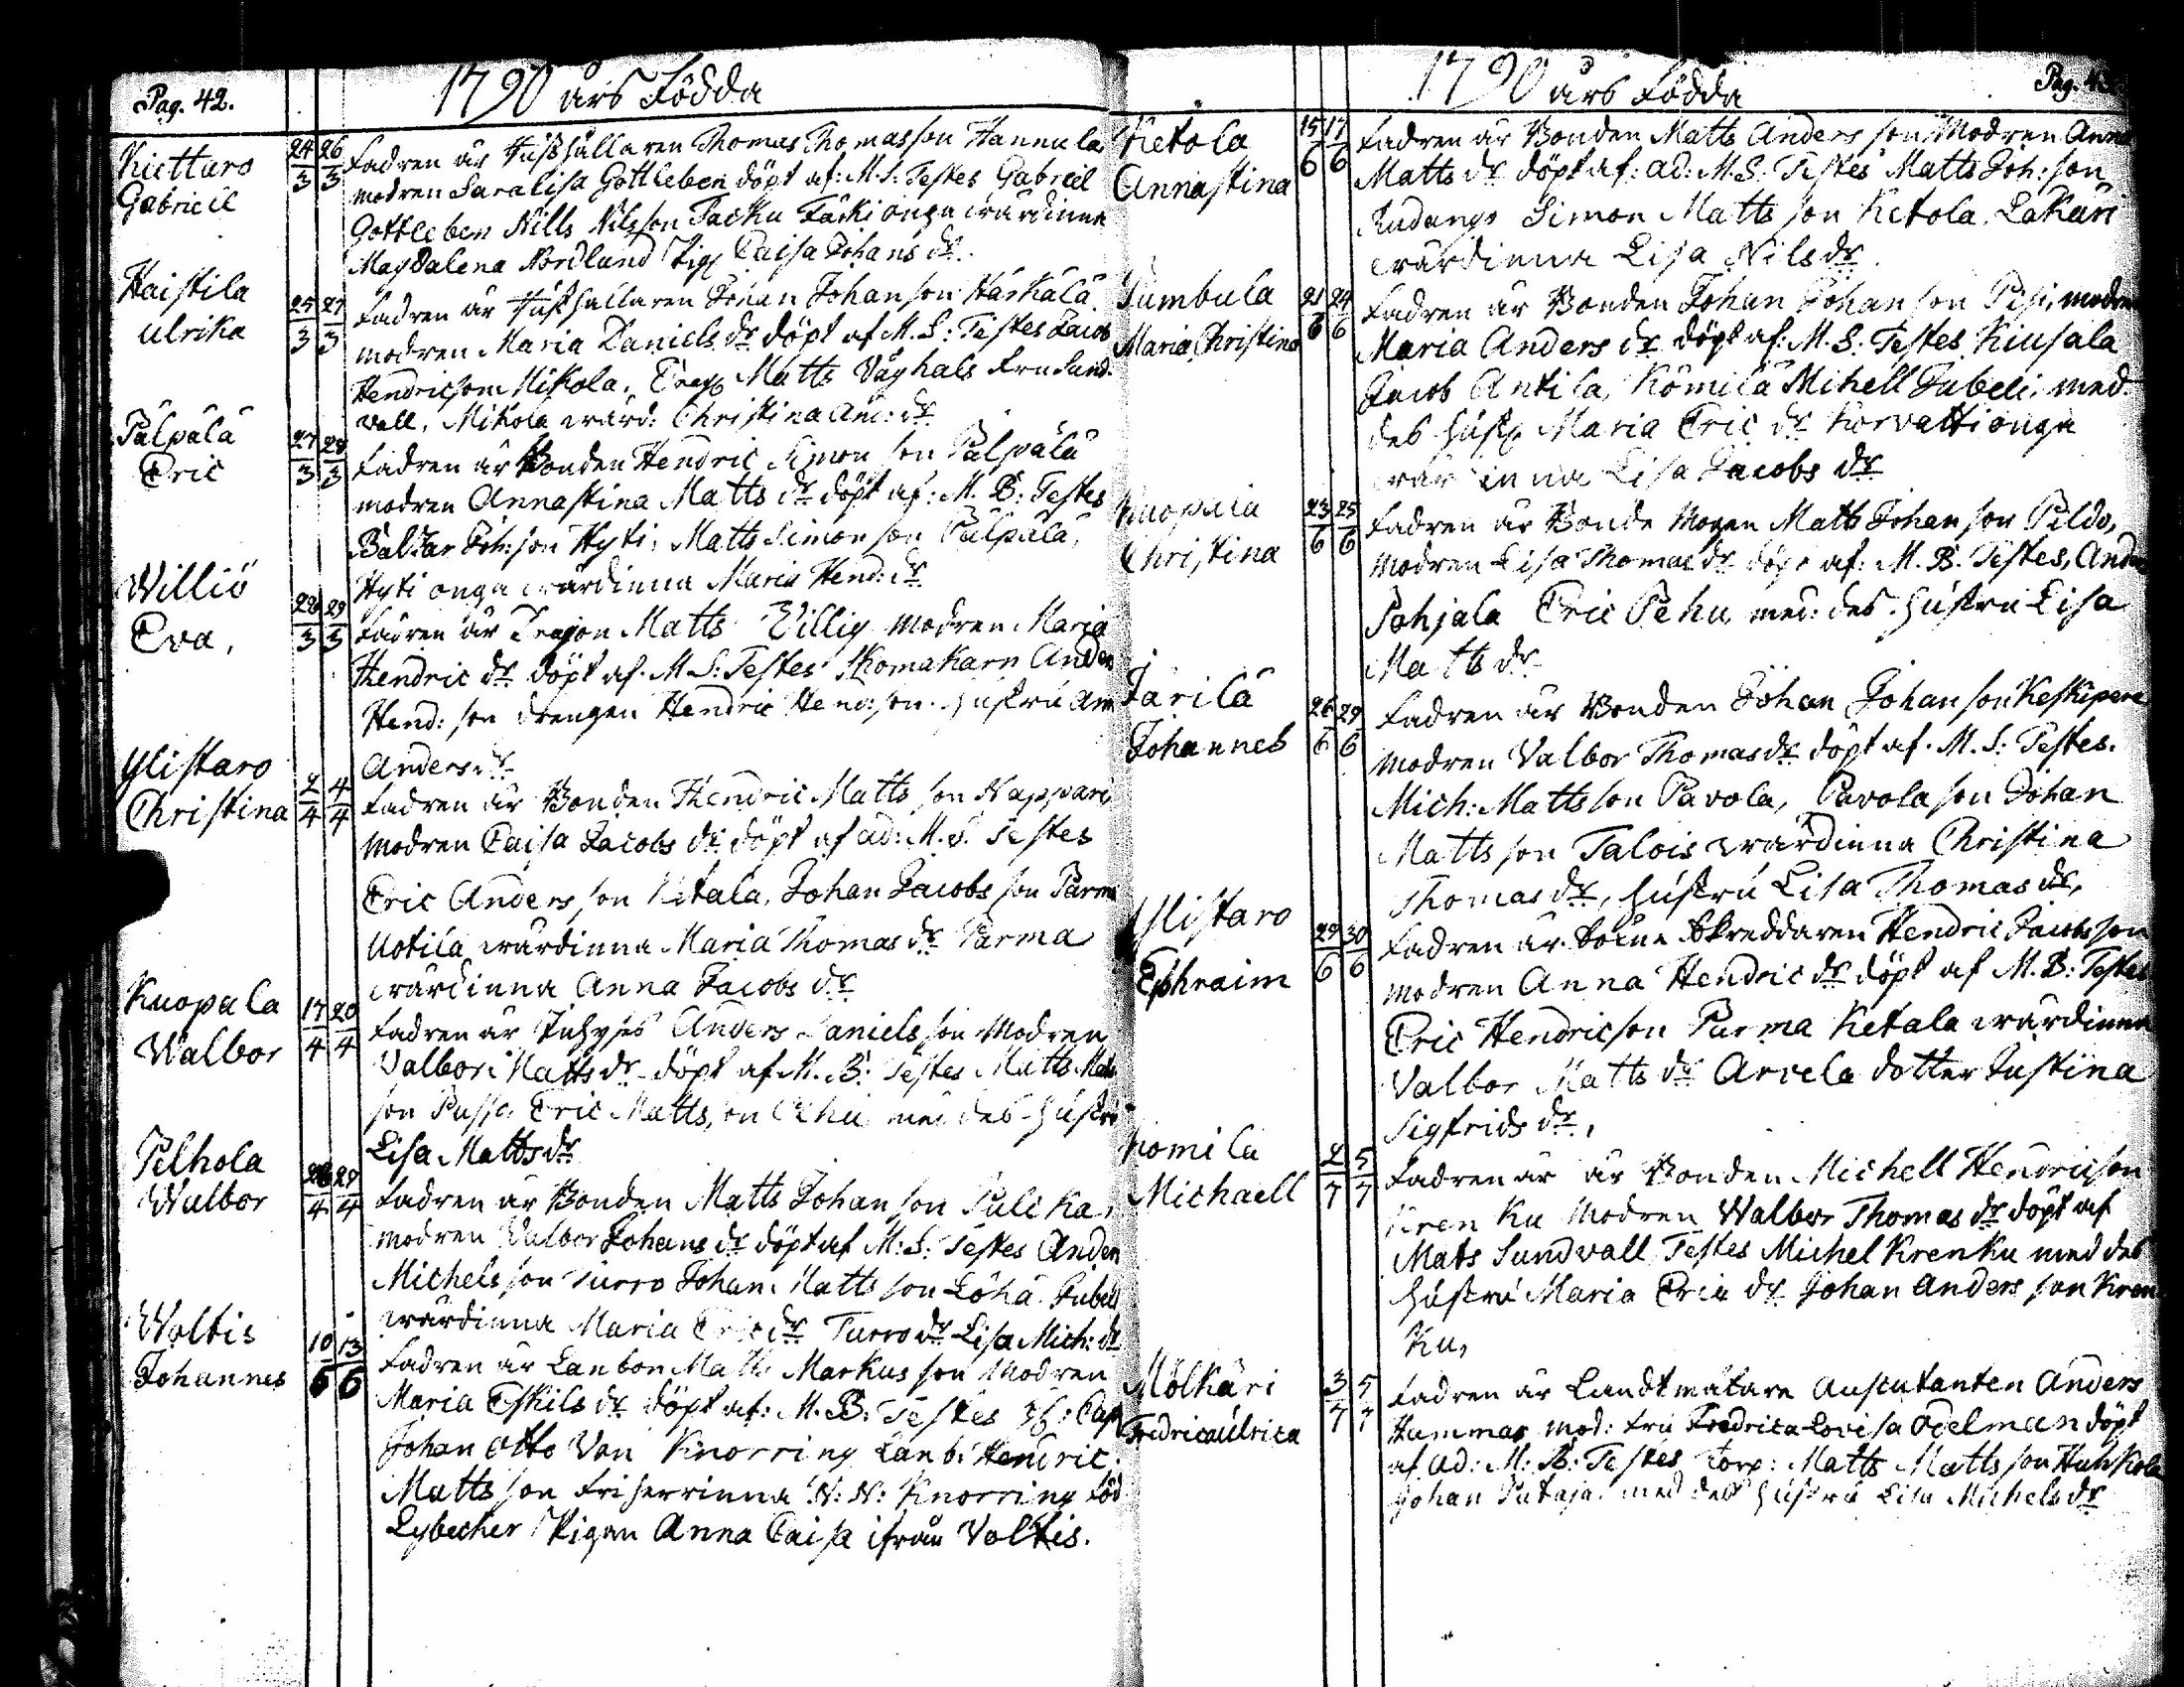 Pag. 42.
1790 års Födda
Kietturo
Gabriell
24/3 26/3
Fadren är Hushållaren Thomas Thomasson Hannula
modren Saralisa Gottleben döpt af: M. S: Testes Gabriel
Gottleben Nills Nilsson Packu Färki onga wärdinna
Magdalena Nordlund Pig. Caisa Johans dr.
Haistila
Ulrika
25/3 27/3
Fadren är Hushallaren Johan Johanson Härkälä
modren Maria Daniels dr döpt af M. S: Testes Jacob
Hendricson Mikola, Drag Matts Våghals Fru Sund-
vall, Mikola wärd: Christina And: dr
Pälpälä
Eric
27/3 28/3
Fadren är Bonden Hendric Simon son Pälpälä
modren Annastina Matts dr döpt af: M. B: Testes
Baltzar Joh: son Hyti, Matts Simon son Pälpälä,
Hyti onga wärdinna Maria Hend: dr
Williö
Eva,
28/3 29/3
Fadren är Dragon Matts Villig modren Maria
Hendric dr döpt af. M S: Testes Skomakarn Anders
Hend: son drengen Hendric Hend: son. hustru An
Anders dr
Ylistaro
Christina
2/4 4/4
Fadren är Bonden Hendric Matts son Nappari,
modren Caisa Jacobs dr döpt af ad: M. S. Testes
Eric Anders son Ketala, Johan Jacobs son Parma
Uotila wärdinna Maria Thomas dr Parma
wärdinna Anna Jacobs dr
Kuopala
Walbor
17/4 20/4
Fadren är Inhyses Anders Daniels son Modren
Valbor Matts dr döpt af M. B: Testes Matts Matts
son Passo, Eric Matts son Pehu med des hustru
Lisa Matts dr
Pelhola
Walbor
28/4 29/4
Fadren är Bonden Matts Johan son Pulika,
modren Walbor Johans dr döpt af M: S: Testes Anders
Michels son Turro Johan Matts son Löhä. Jubeli
wärdinna Maria Eric dr Turro dr Lisa Mich: dr
Woltis
Johannes
10/6 13/6
Fadren är Lanbon Matts Markus son Modren
Maria Eskils dr döpt af: M. B: Testes H: Cap
Johan Otto Von Knorring Lanb: Hendric
Matts son Friherrinna N: N: Knorring föd
Lybecker Pigan Anna Caisa ifrån Voltis.
1790 års Födda
Pag.
Ketola
Annastina
15/6 17/6
Fadren är Bonden Matts Anders son Modren Anna
Matts dr döpt af: ad: M. S. Testes Matts Joh: son
Rudangs Simon Matts son Ketola. Lakari
wärdinna Lisa Nils dr.
Jumbula
Maria Christina
21/6 24/6
Fadren är Bonden Johan Johan son Pesi, modren
Maria Anders dr döpt af: M. S: Testes Kiusala
Jacob Antila, Kömilä Mihell Jubeli, med
des hust. Maria Eric dr Korvatti onga
wärdinna Lisa Jacobs dr
Kuopala
Christina
23/6 25/6
Fadren är Bonde Mogen Matts Johan son Peldo,
modren Lisa Thomas dr döpt af: M. B. Testes, Anders
Pohjala Eric Pehu, med: des hustru Lisa
Matts dr
Jarilä
Johannes
26/6 29/6
Fadren är Bonden Johan Johan son Keskipere
modren Valbor Thomas dr döpt af. M. S: Testes.
Mich: Matts son Pavola, Pavola son Johan
Matts son Talois wärdinna Christina
Thomas dr, hustru Lisa Thomas dr,
Ylistaro
Ephraim
29/6 30/6
Fadren är Sokne Skreddaren Hendric Jacobs son
modren Anna Hendric dr döpt af M. B: Testes
Eric Hendricson Parma Ketala wärdinna
Valbor Matts dr Arvela dotter Justina
Sigfrids dr,
Komila
Michaell
2/7 5/7
Fadren är är Bonden Michell Hendricson
Krenku Modren Walbor Thomas dr döpt af
Mats Sundvall Testes Michel Krenku med des
hustru Maria Eric dr Johan Anders son Kren
ku,
Mölkäri
Fredrica ulrica
3/7 5/7
Fadren är Landtmätare Auscutanten Anders
Hummas mod: Fru Fredrica Lovisa Odelman döpt
af ad: M: B: Testes Torp: Matts Matts son Huhkola
Johan Pataja. med des hustru Lisa Michels dr